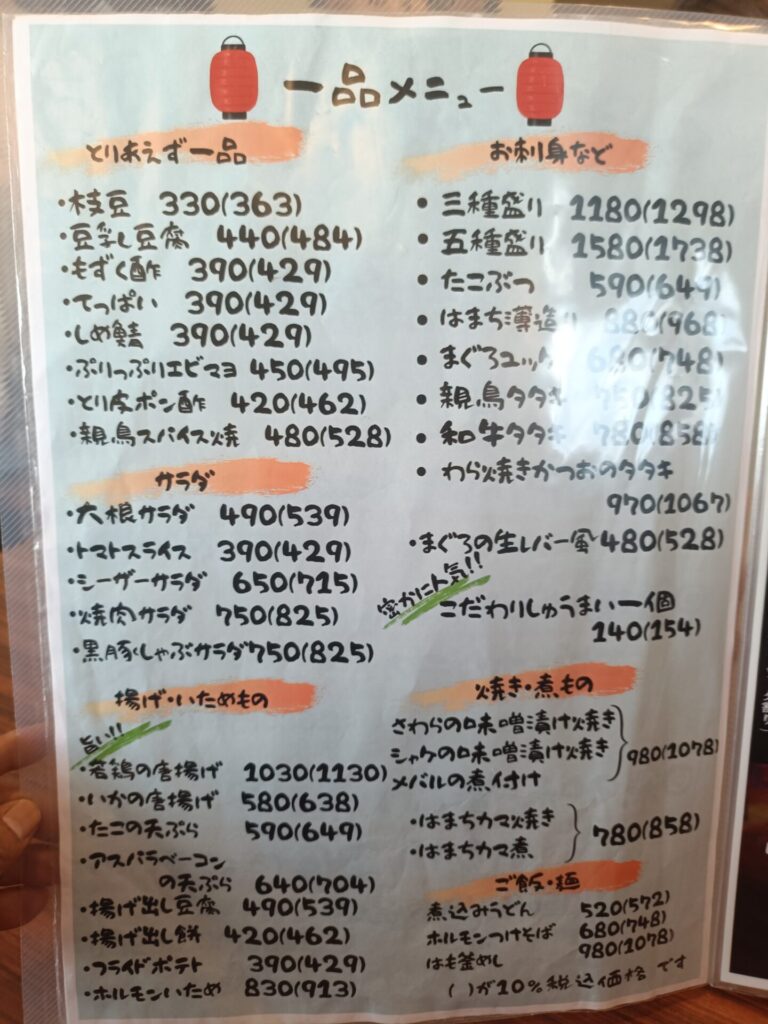 一品メニュー
とりあえず一品
・枝豆 330(363)
・豆乳し豆腐 440(484)
・もずく酢 390(429)
・てっぱい 390(429)
・しめ鯖 390(429)
・ぷりっぷりエビマヨ 450(495)
・とり皮ポン酢 420(462)
・親鳥スパイス焼 480(528)
サラダ
・大根サラダ 490(539)
・トマトスライス 390(429)
・シーザーサラダ 650(715)
・焼肉サラダ 750(825)
・黒豚しゃぶサラダ 750(825)
揚げ・いためもの
旨い!!
・若鶏の唐揚げ 1030(1130)
・いかの唐揚げ 580(638)
・たこの天ぷら 590(649)
・アスパラベーコン
の天ぷら 640(704)
・揚げ出し豆腐 490(539)
・揚げ出し餅 420(462)
・フライドポテト 390(429)
・ホルモンいため 830(913)
お刺身など
・三種盛り 1180(1298)
・五種盛り 1580(1738)
・たこぶつ 590(649)
・はまち薄造り 880(968)
・まぐろユッケ 680(748)
・親鳥タタキ 750(825)
・和牛タタキ 780(858)
・わら焼きかつおのタタキ
970(1067)
・まぐろの生レバー風 480(528)
密かに人気!!
こだわりしゅうまい一個
140(154)
焼き・煮もの
さわらの味噌漬け焼き
シャケの味噌漬け焼き
メバルの煮付け
980(1078)
・はまちカマ焼き
・はまちカマ煮
780(858)
ご飯・麺
煮込みうどん 520(572)
ホルモンつけそば 680(748)
はも釜めし 980(1078)
( )が10%税込価格です